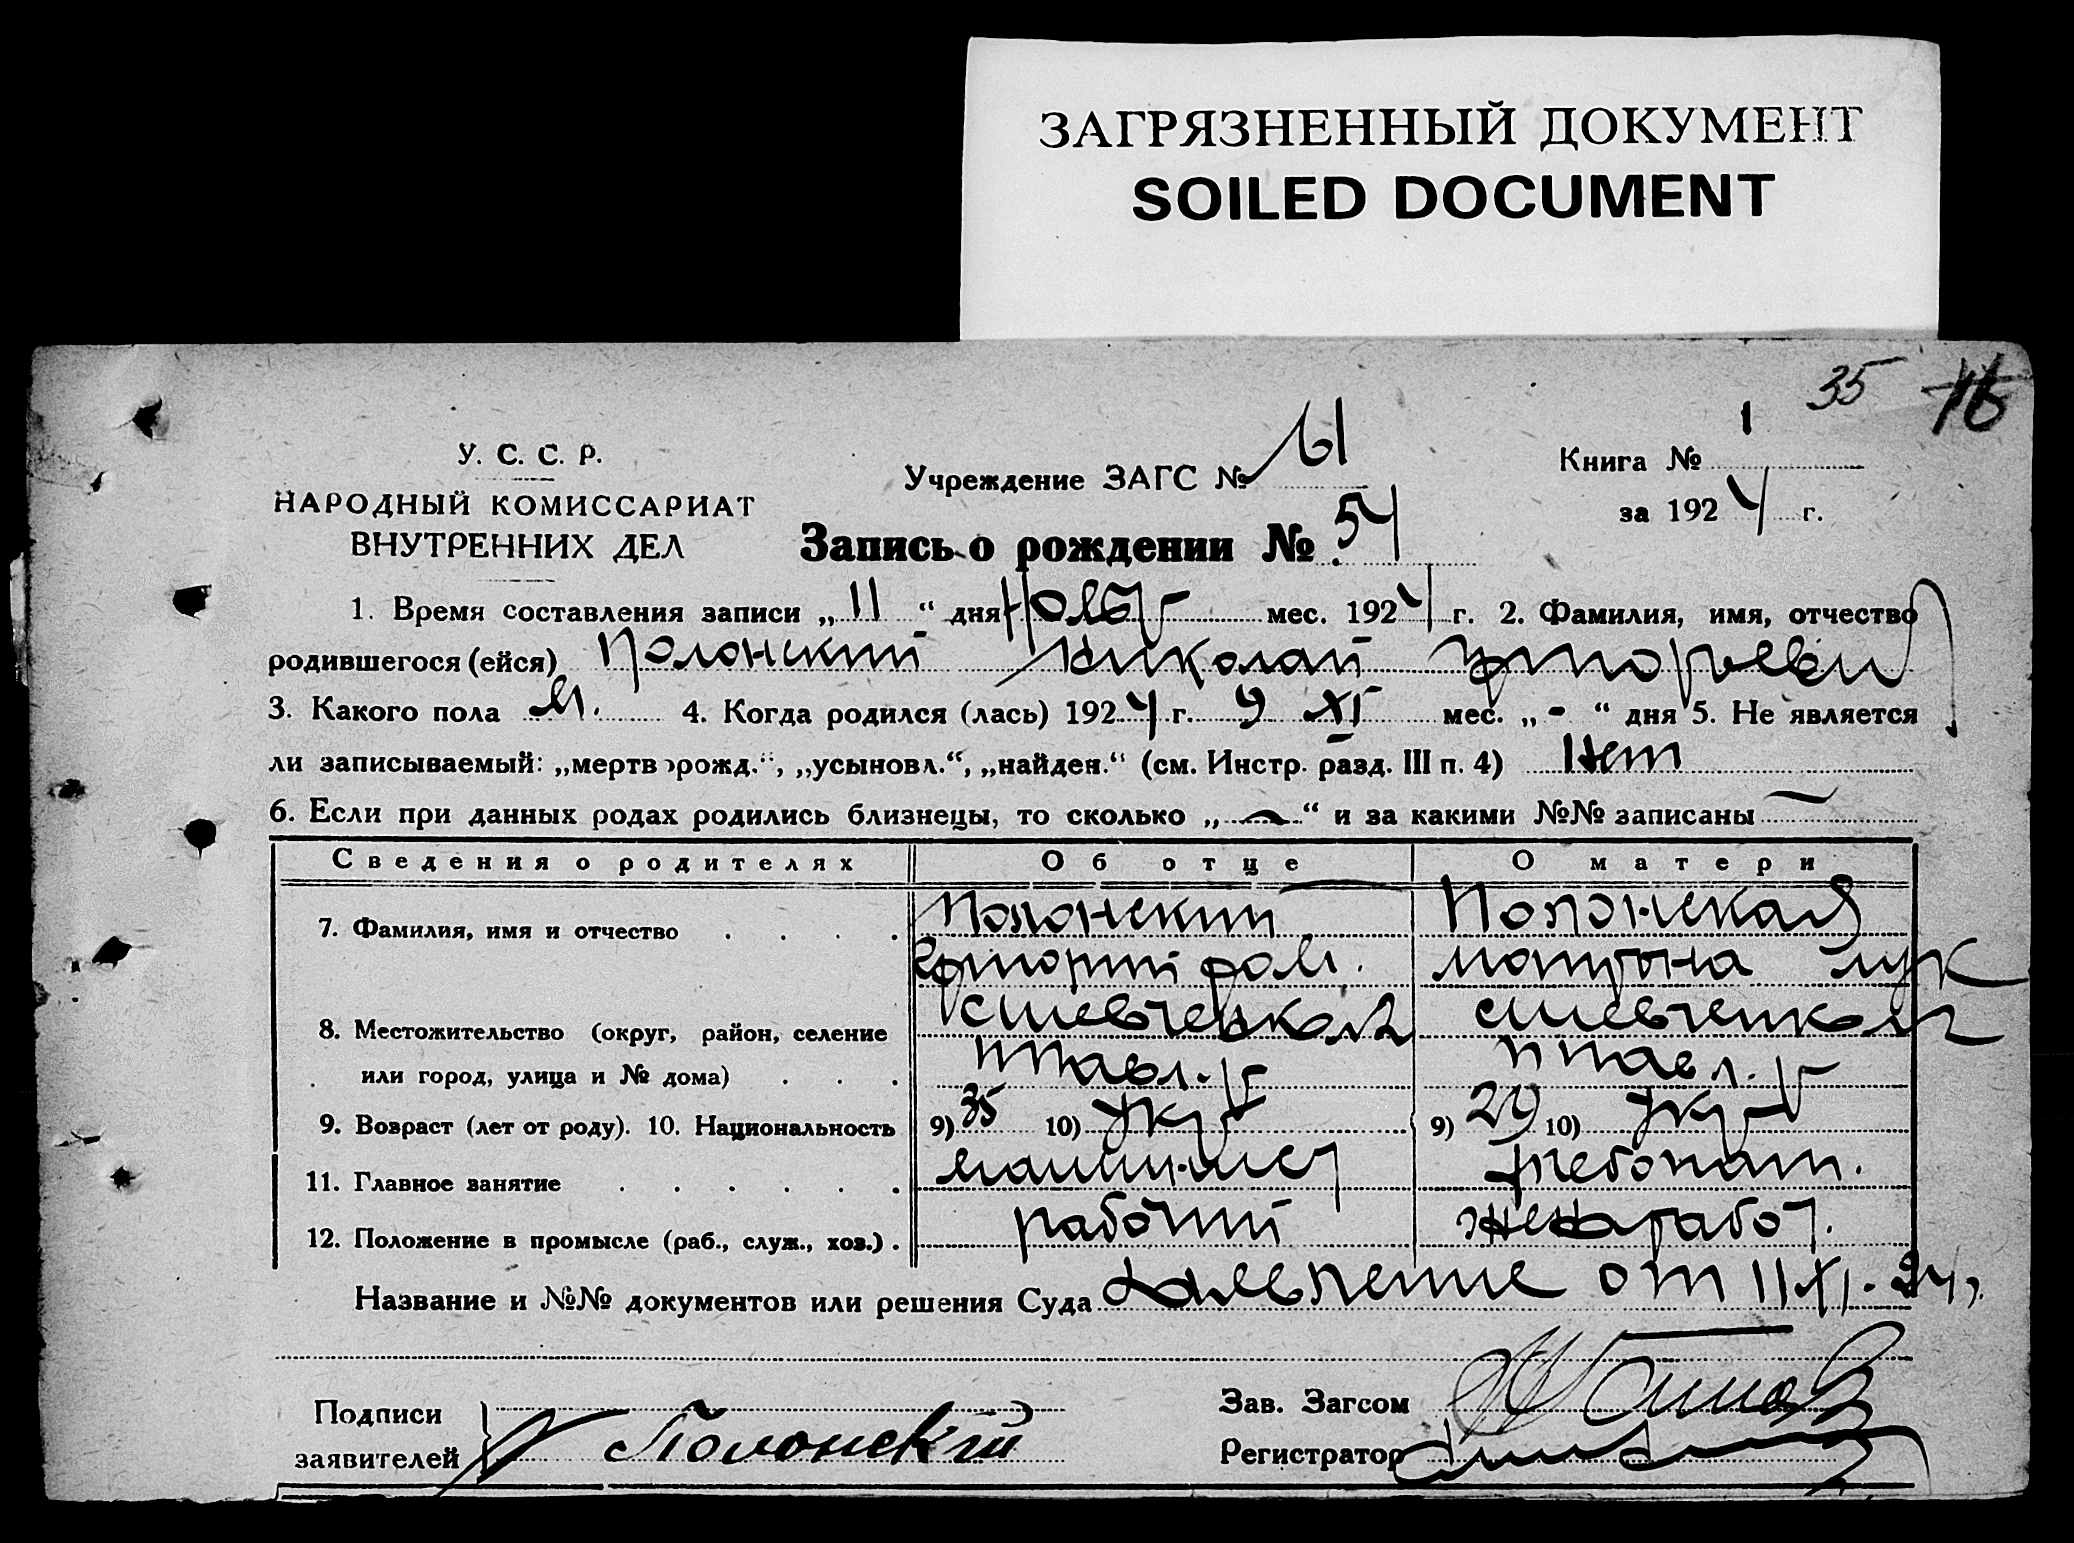 ЗАГРЯЗНЕННЫЙ ДОКУМЕНТ
SOILED DOCUMENT
35 16
У. С. С. Р.
НАРОДНЫЙ КОМИССАРИАТ
ВНУТРЕННИХ ДЕЛ
Учреждение ЗАГС №
Книга № 1
за 1924 г.
Запись о рождении № 54
1. Время составления записи „11“ дня Нояб мес. 1924 г. 2. Фамилия, имя, отчество
родившегося (ейся) Полонский Николай
3. Какого пола М. 4. Когда родился (лась) 1924 г. 9 XI мес. „-“ дня 5. Не является
ли записываемый: „мертворожд.“, „усыновл.“, „найден.“ (см. Инстр. разд. III п. 4) Нет
6. Если при данных родах родились близнецы, то сколько „—“ и за какими №№ записаны —
Сведения о родителях Об отце О матери
7. Фамилия, имя и отчество Полонский Полонская
Григорий Ром. Мотрона Лук
8. Местожительство (округ, район, селение
или город, улица и № дома)
9. Возраст (лет от роду). 10. Национальность 9) 35 10) Укр 9) 29 10) Укр
11. Главное занятие машинист
12. Положение в промысле (раб., служ., хоз.) рабочий жена работ.
Название и №№ документов или решения Суда Заявление от 11 XI - 24 г.
Подписи
заявителей Полонский
Зав. Загсом
Регистратор